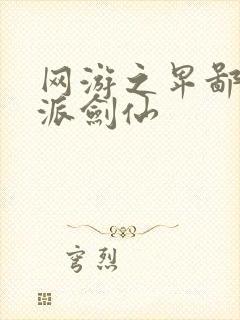 网游之卑鄙
派剑仙
穹烈